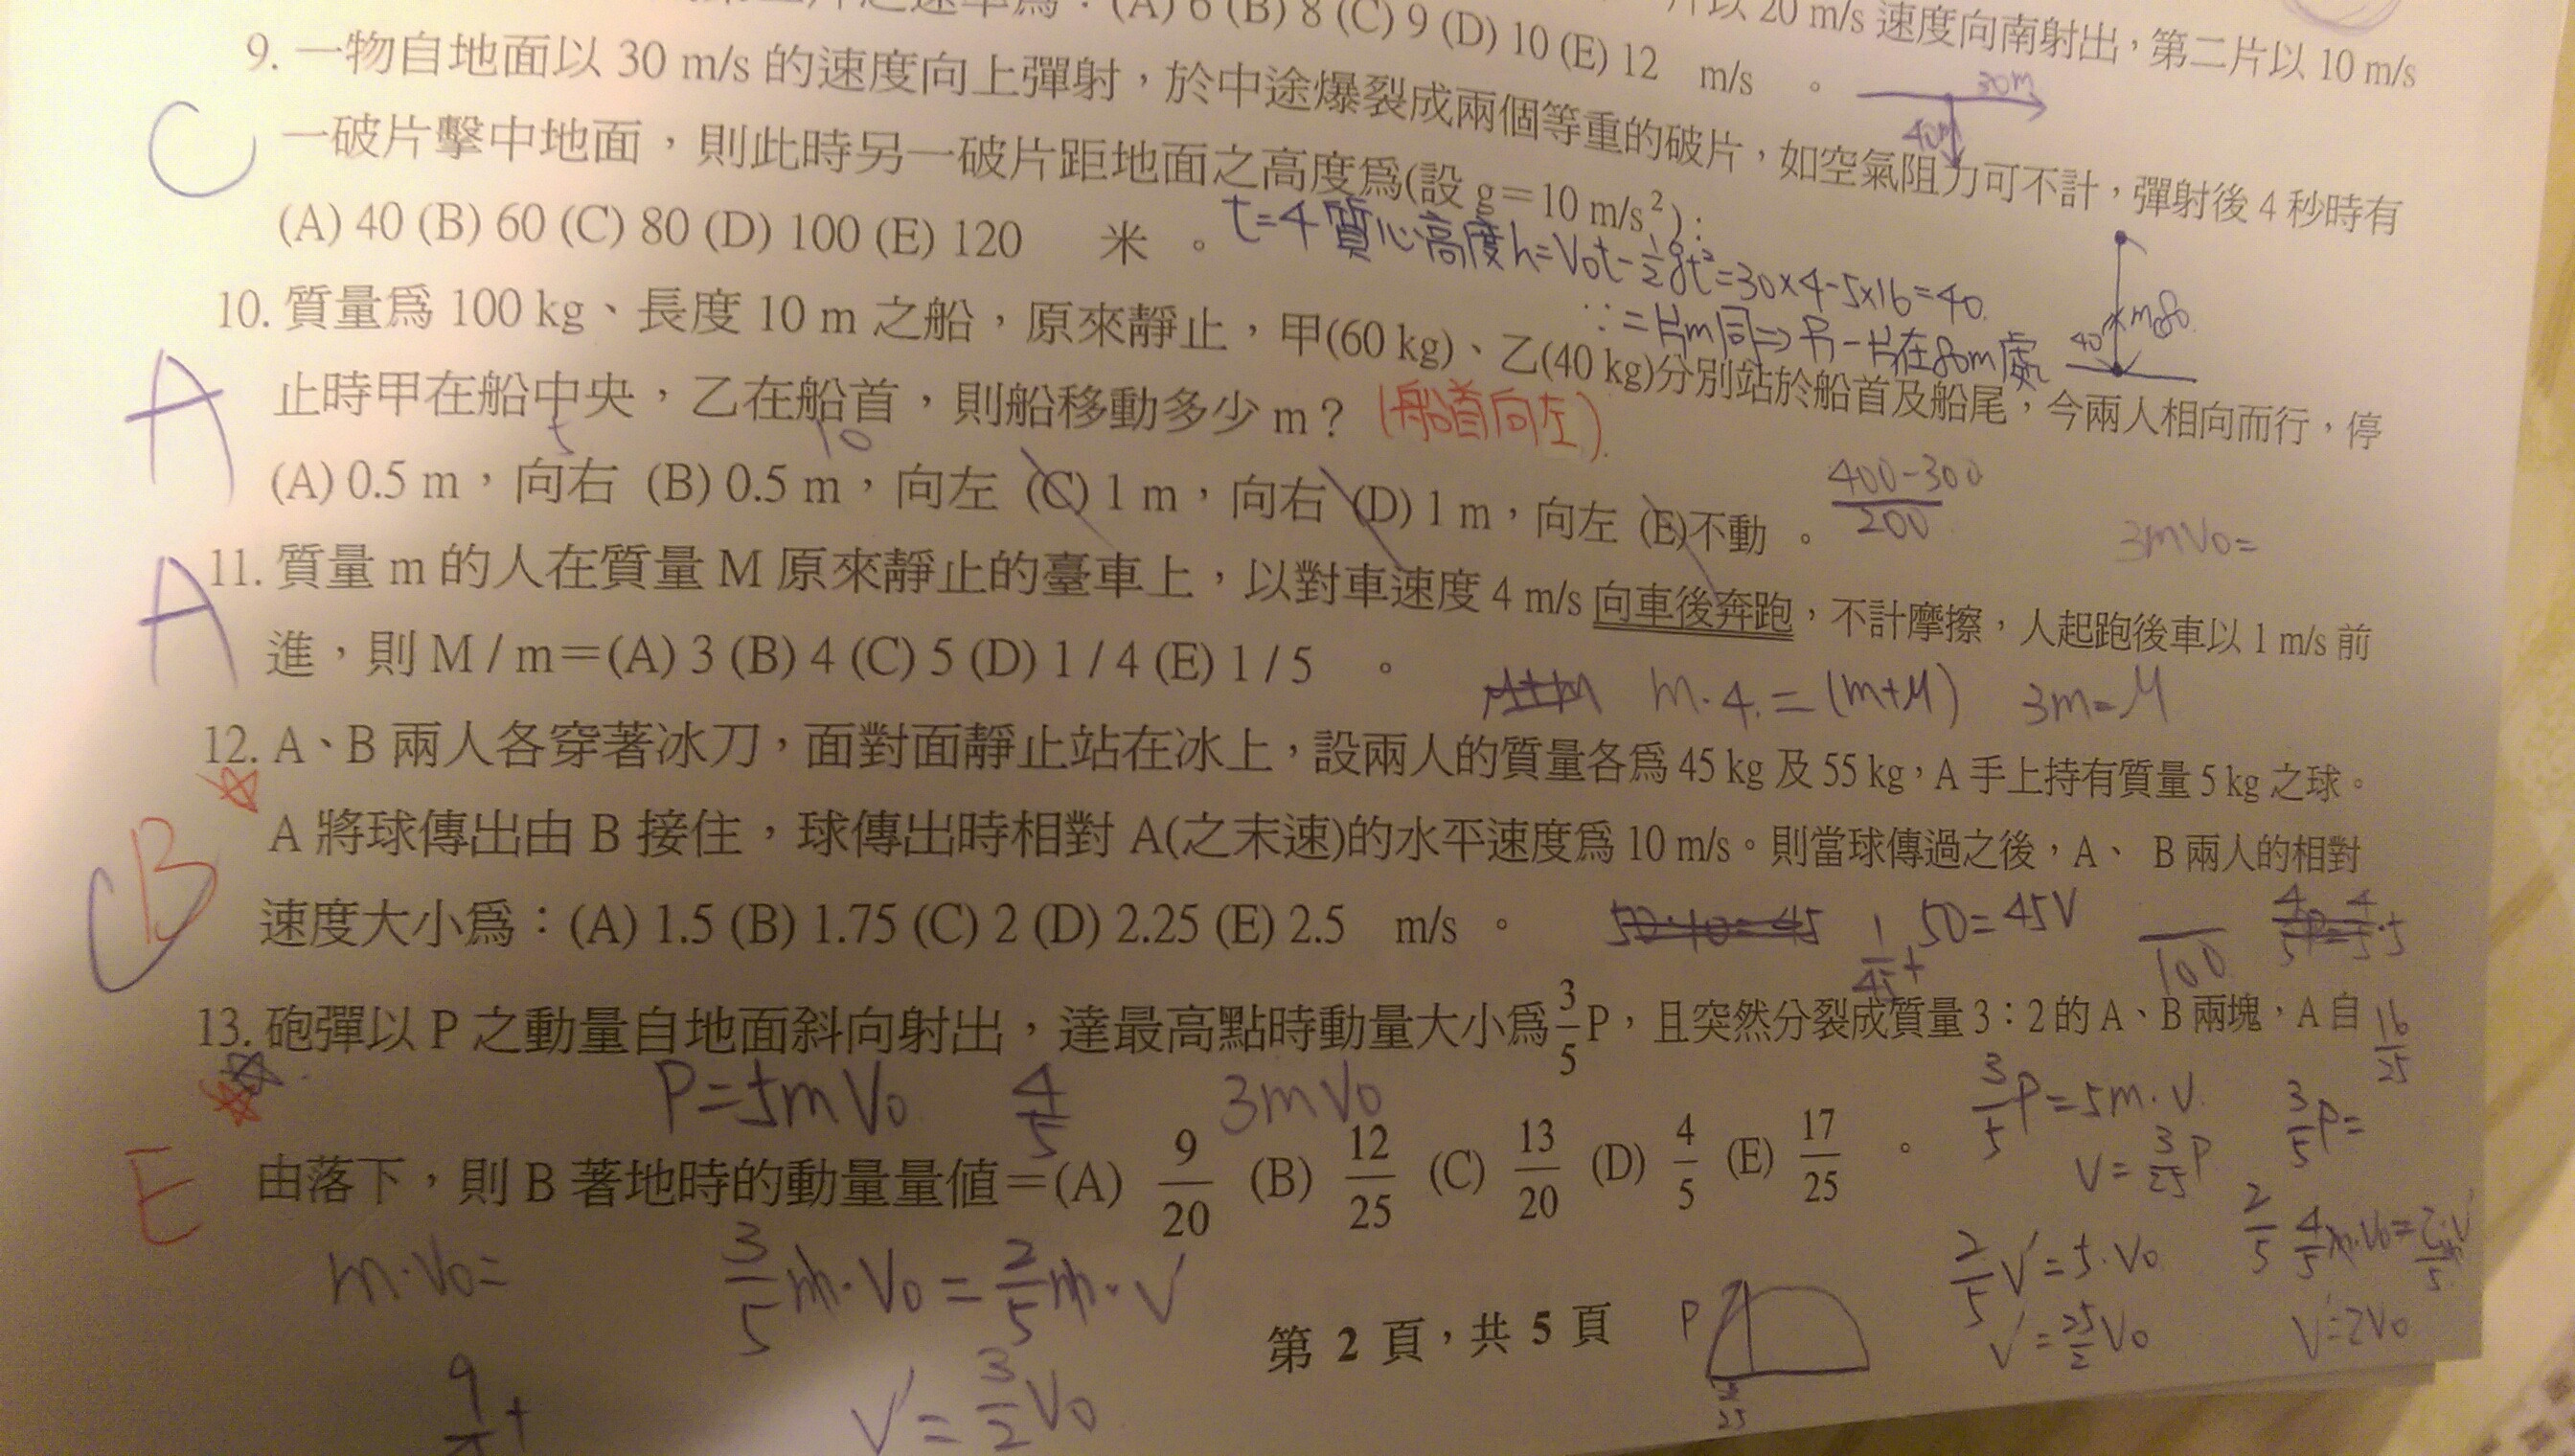 (A) 6 (B) 8 (C) 9 (D) 10 (E) 12 m/s 。
以 20 m/s 速度向南射出，第二片以 10 m/s
9. 一物自地面以 30 m/s 的速度向上彈射，於中途爆裂成兩個等重的破片，如空氣阻力可不計，彈射後 4 秒時有
30m
40m
C
一破片擊中地面，則此時另一破片距地面之高度為(設 g＝10 m/s²)：
(A) 40 (B) 60 (C) 80 (D) 100 (E) 120 米 。
t=4 質心高度h=V0t-½gt²=30×4-5×16=40
∵二片m同⇒另一片在80m處
40
10. 質量為 100 kg、長度 10 m 之船，原來靜止，甲(60 kg)、乙(40 kg)分別站於船首及船尾，今兩人相向而行，停
A
止時甲在船中央，乙在船首，則船移動多少 m？ (船首向左)
5 10
(A) 0.5 m，向右 (B) 0.5 m，向左 (C) 1 m，向右 (D) 1 m，向左 (E)不動 。
400-300
200
3mV0=
11. 質量 m 的人在質量 M 原來靜止的臺車上，以對車速度 4 m/s 向車後奔跑，不計摩擦，人起跑後車以 1 m/s 前
A
進，則 M / m＝(A) 3 (B) 4 (C) 5 (D) 1 / 4 (E) 1 / 5 。
m·4=(m+M) 3m=M
12. A、B 兩人各穿著冰刀，面對面靜止站在冰上，設兩人的質量各為 45 kg 及 55 kg，A 手上持有質量 5 kg 之球。
A 將球傳出由 B 接住，球傳出時相對 A(之末速)的水平速度為 10 m/s。則當球傳過之後，A、 B 兩人的相對
C B
速度大小為：(A) 1.5 (B) 1.75 (C) 2 (D) 2.25 (E) 2.5 m/s 。
50·10=45 50=45V
1/45+
100
13. 砲彈以 P 之動量自地面斜向射出，達最高點時動量大小為 3/5 P，且突然分裂成質量 3：2 的 A、B 兩塊，A 自
16/25
P=5mV0 4/5 3mV0
3/5P=5m·V 3/5P=
V=3/25P
E
由落下，則 B 著地時的動量量值＝(A) 9/20 (B) 12/25 (C) 13/20 (D) 4/5 (E) 17/25 。
m·V0= 3/5m·V0=2/5m·V
2/5V'=5·V0
V'=25/2V0 V'=2V0
第 2 頁，共 5 頁
P
V'=3/2V0